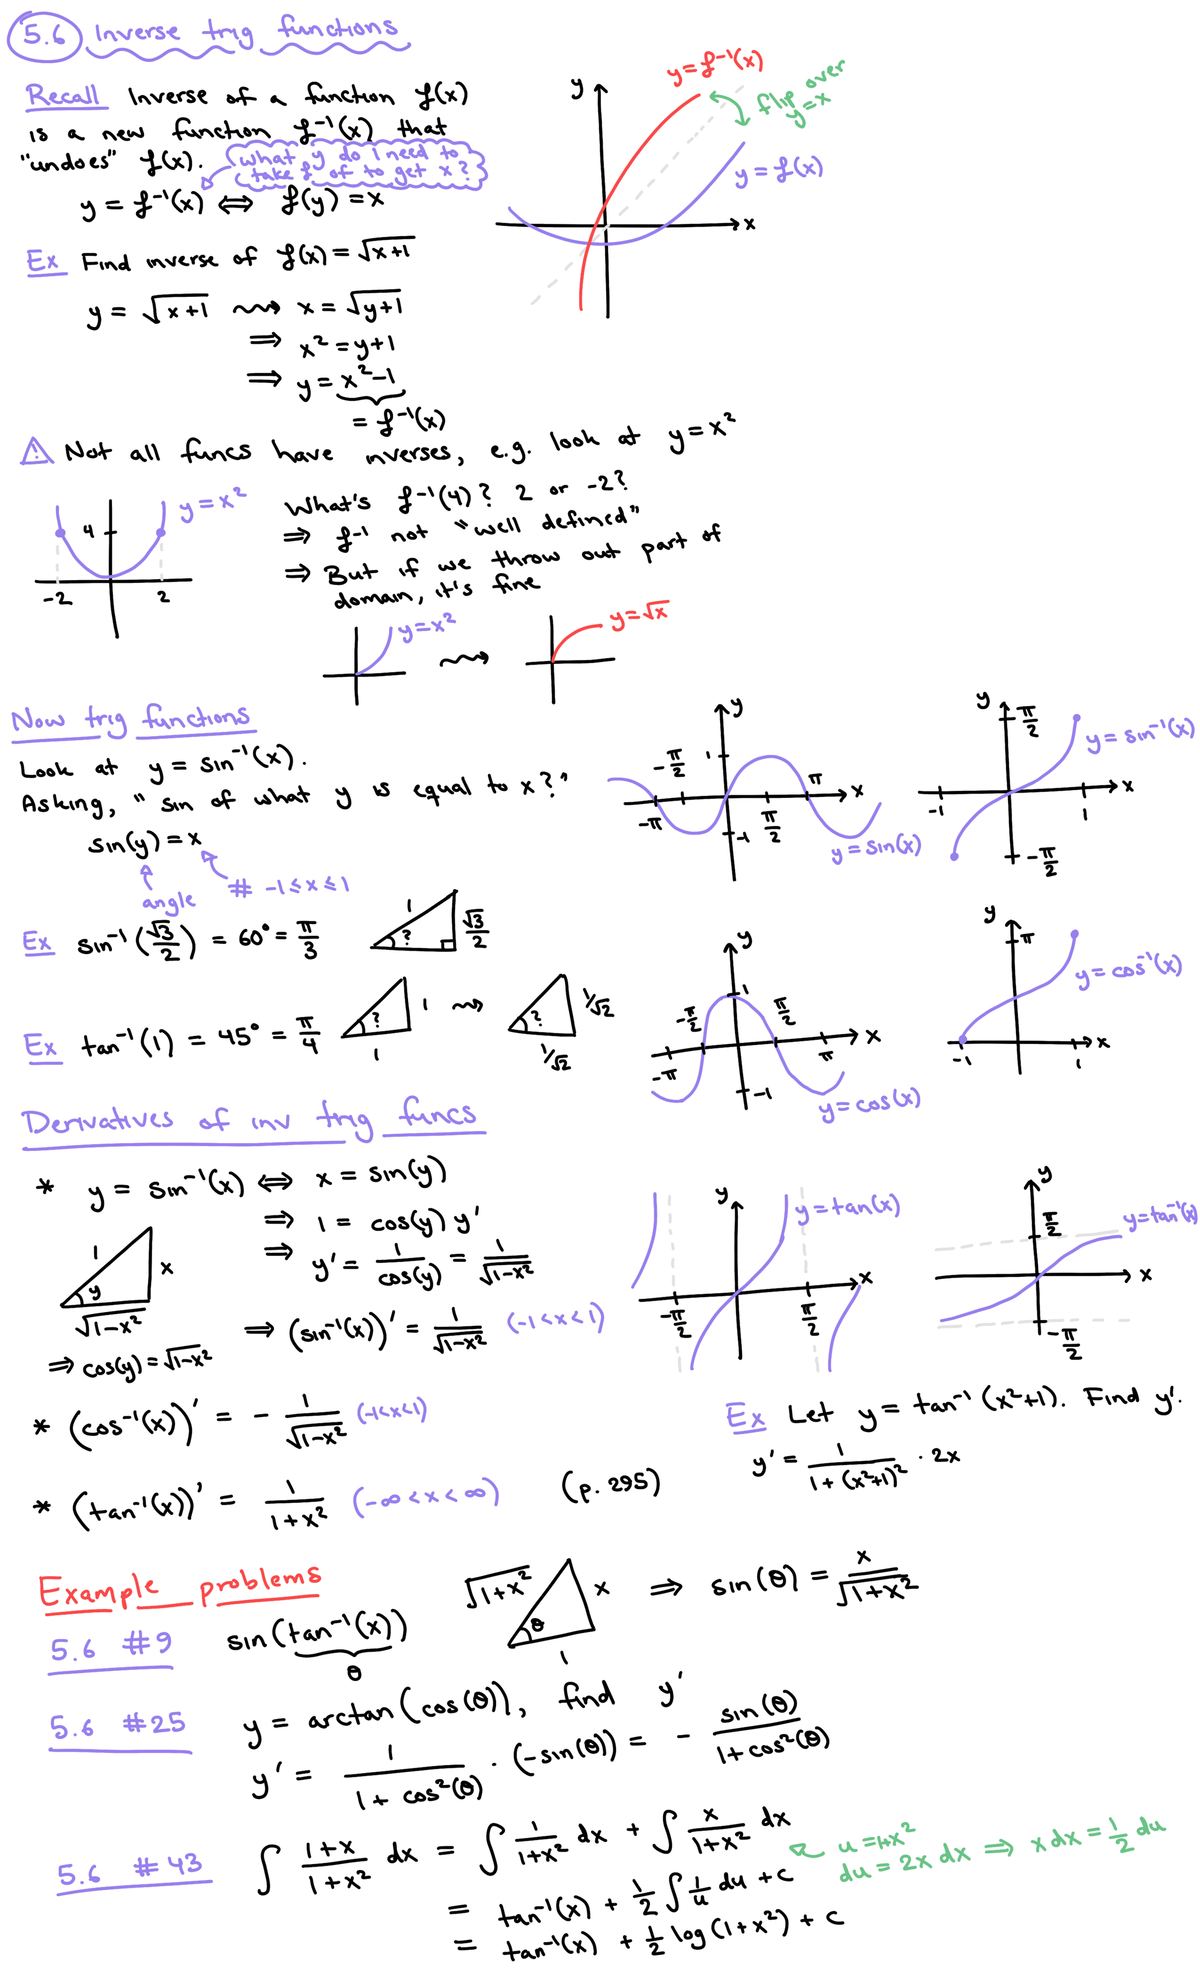 5.6 Inverse trig functions
Recall Inverse of a function f(x)
is a new function f⁻¹(x) that
"undoes" f(x).
what y do I need to
take f of to get x?
y = f⁻¹(x) ⇔ f(y) = x
y
y = f⁻¹(x)
flip over
y=x
y = f(x)
x
Ex Find inverse of f(x) = √(x+1)
y = √(x+1) ⇝ x = √(y+1)
⇒ x² = y+1
⇒ y = x²-1
= f⁻¹(x)
⚠ Not all funcs have inverses, e.g. look at y = x²
y = x²
4
-2
2
What's f⁻¹(4)? 2 or -2?
⇒ f⁻¹ not "well defined"
⇒ But if we throw out part of
domain, it's fine
y=x²
⇝
y=√x
Now trig functions
Look at y = sin⁻¹(x).
Asking, "sin of what y is equal to x?"
sin(y) = x
angle
# -1≤x≤1
y
-π/2
1
π
x
-π
-1
π/2
y = sin(x)
y
π/2
y = sin⁻¹(x)
x
-1
1
-π/2
Ex sin⁻¹(√3/2) = 60° = π/3
1
?
√3/2
Ex tan⁻¹(1) = 45° = π/4
?
1
1
⇝
?
1/√2
1/√2
y
1
-π/2
π/2
x
-π
π
-1
y = cos(x)
y
π
y = cos⁻¹(x)
x
-1
1
Derivatives of inv trig funcs
* y = sin⁻¹(x) ⇔ x = sin(y)
⇒ 1 = cos(y) y'
⇒ y' = 1/cos(y) = 1/√(1-x²)
1
x
y
√(1-x²)
⇒ cos(y) = √(1-x²)
⇒ (sin⁻¹(x))' = 1/√(1-x²) (-1<x<1)
y
y = tan(x)
x
-π/2
π/2
y
π/2
y=tan⁻¹(x)
x
-π/2
* (cos⁻¹(x))' = - 1/√(1-x²) (-1<x<1)
* (tan⁻¹(x))' = 1/(1+x²) (-∞<x<∞) (p. 295)
Ex Let y = tan⁻¹(x²+1). Find y'.
y' = 1/(1+(x²+1)²) · 2x
Example problems
5.6 #9 sin(tan⁻¹(x))
θ
√(1+x²)
x
θ
1
⇒ sin(θ) = x/√(1+x²)
5.6 #25 y = arctan(cos(θ)), find y'
y' = 1/(1+cos²(θ)) · (-sin(θ)) = - sin(θ)/(1+cos²(θ))
5.6 #43 ∫ (1+x)/(1+x²) dx = ∫ 1/(1+x²) dx + ∫ x/(1+x²) dx
u = 1+x²
du = 2x dx ⇒ x dx = 1/2 du
= tan⁻¹(x) + 1/2 ∫ 1/u du + C
= tan⁻¹(x) + 1/2 log(1+x²) + C